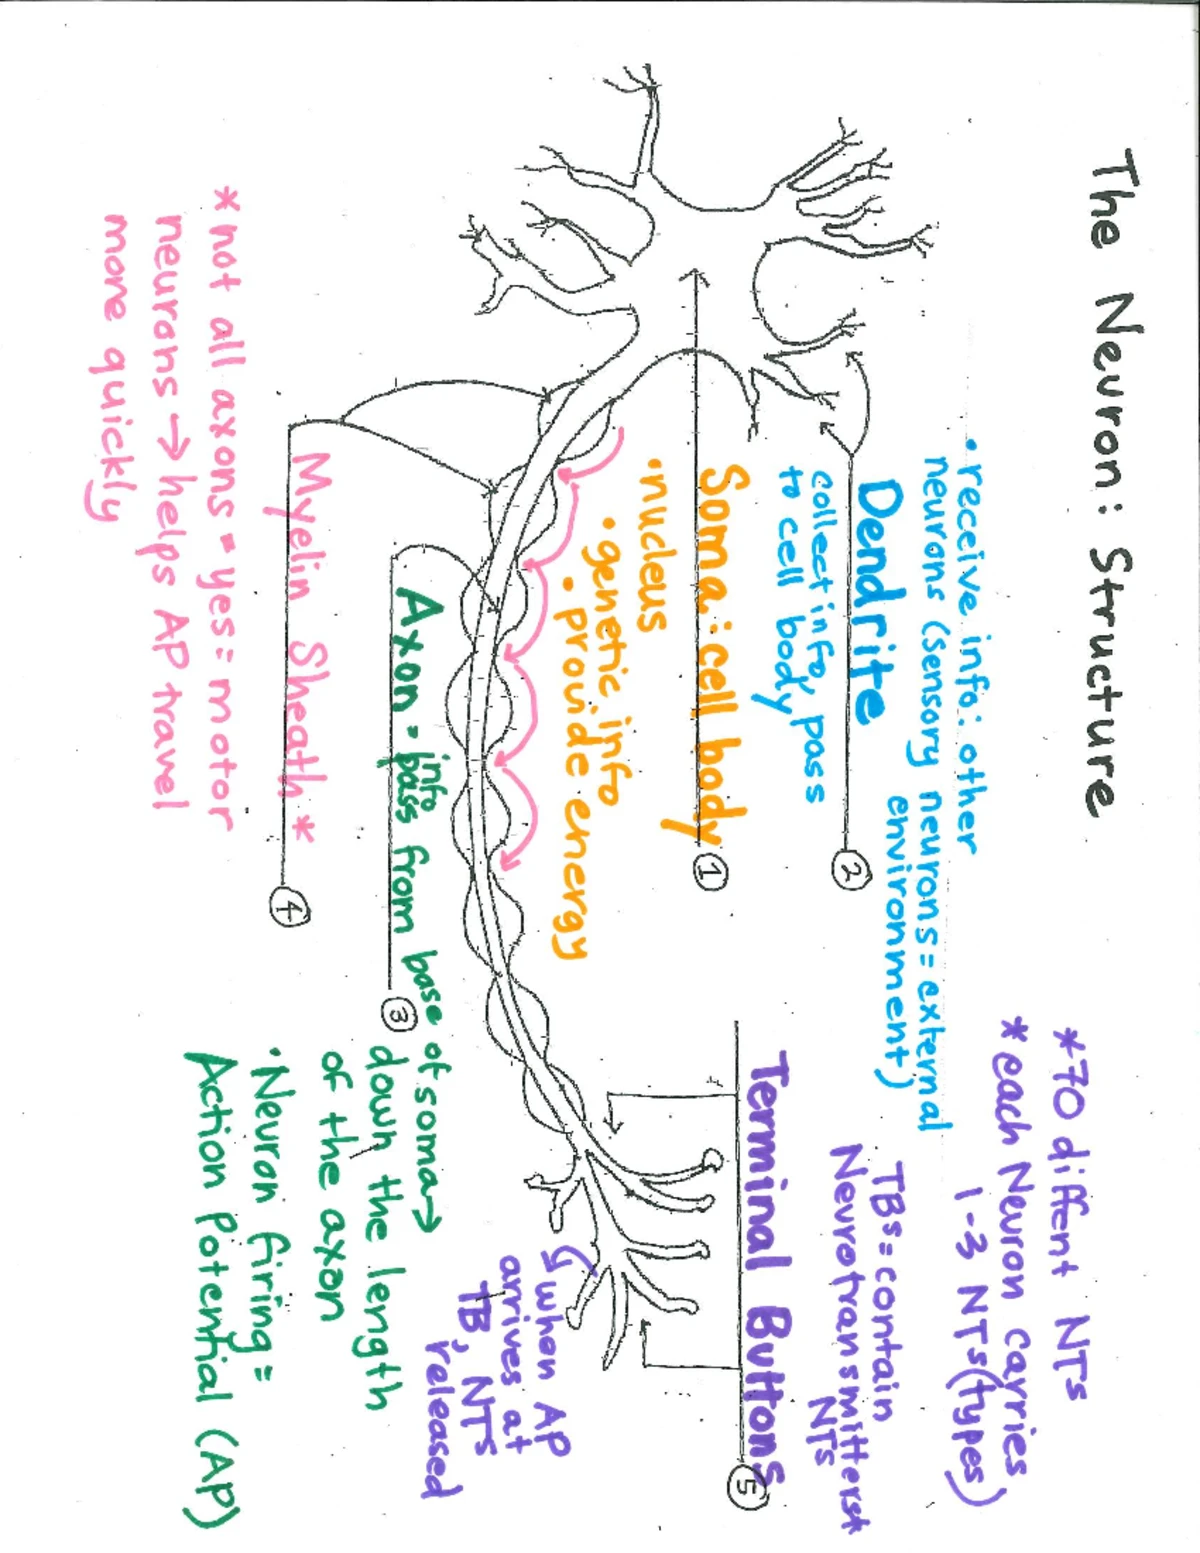 The Neuron: Structure
*70 diffent NTs
*each Neuron carries
1-3 NTs (types)
• receive info: other
neurons (sensory neurons = external
environment)
Dendrite
②
collect info, pass
to cell body
TBs = contain
Neurotransmitters*
NTs
Soma: cell body
①
• nucleus
• genetic info
• provide energy
Terminal Buttons
⑤
when AP
arrives at
TB, NTs
released
Axon = info pass from base of soma→
③
down the length
of the axon
• Neuron firing =
Action Potential (AP)
Myelin Sheath *
④
*not all axons = yes = motor
neurons → helps AP travel
more quickly